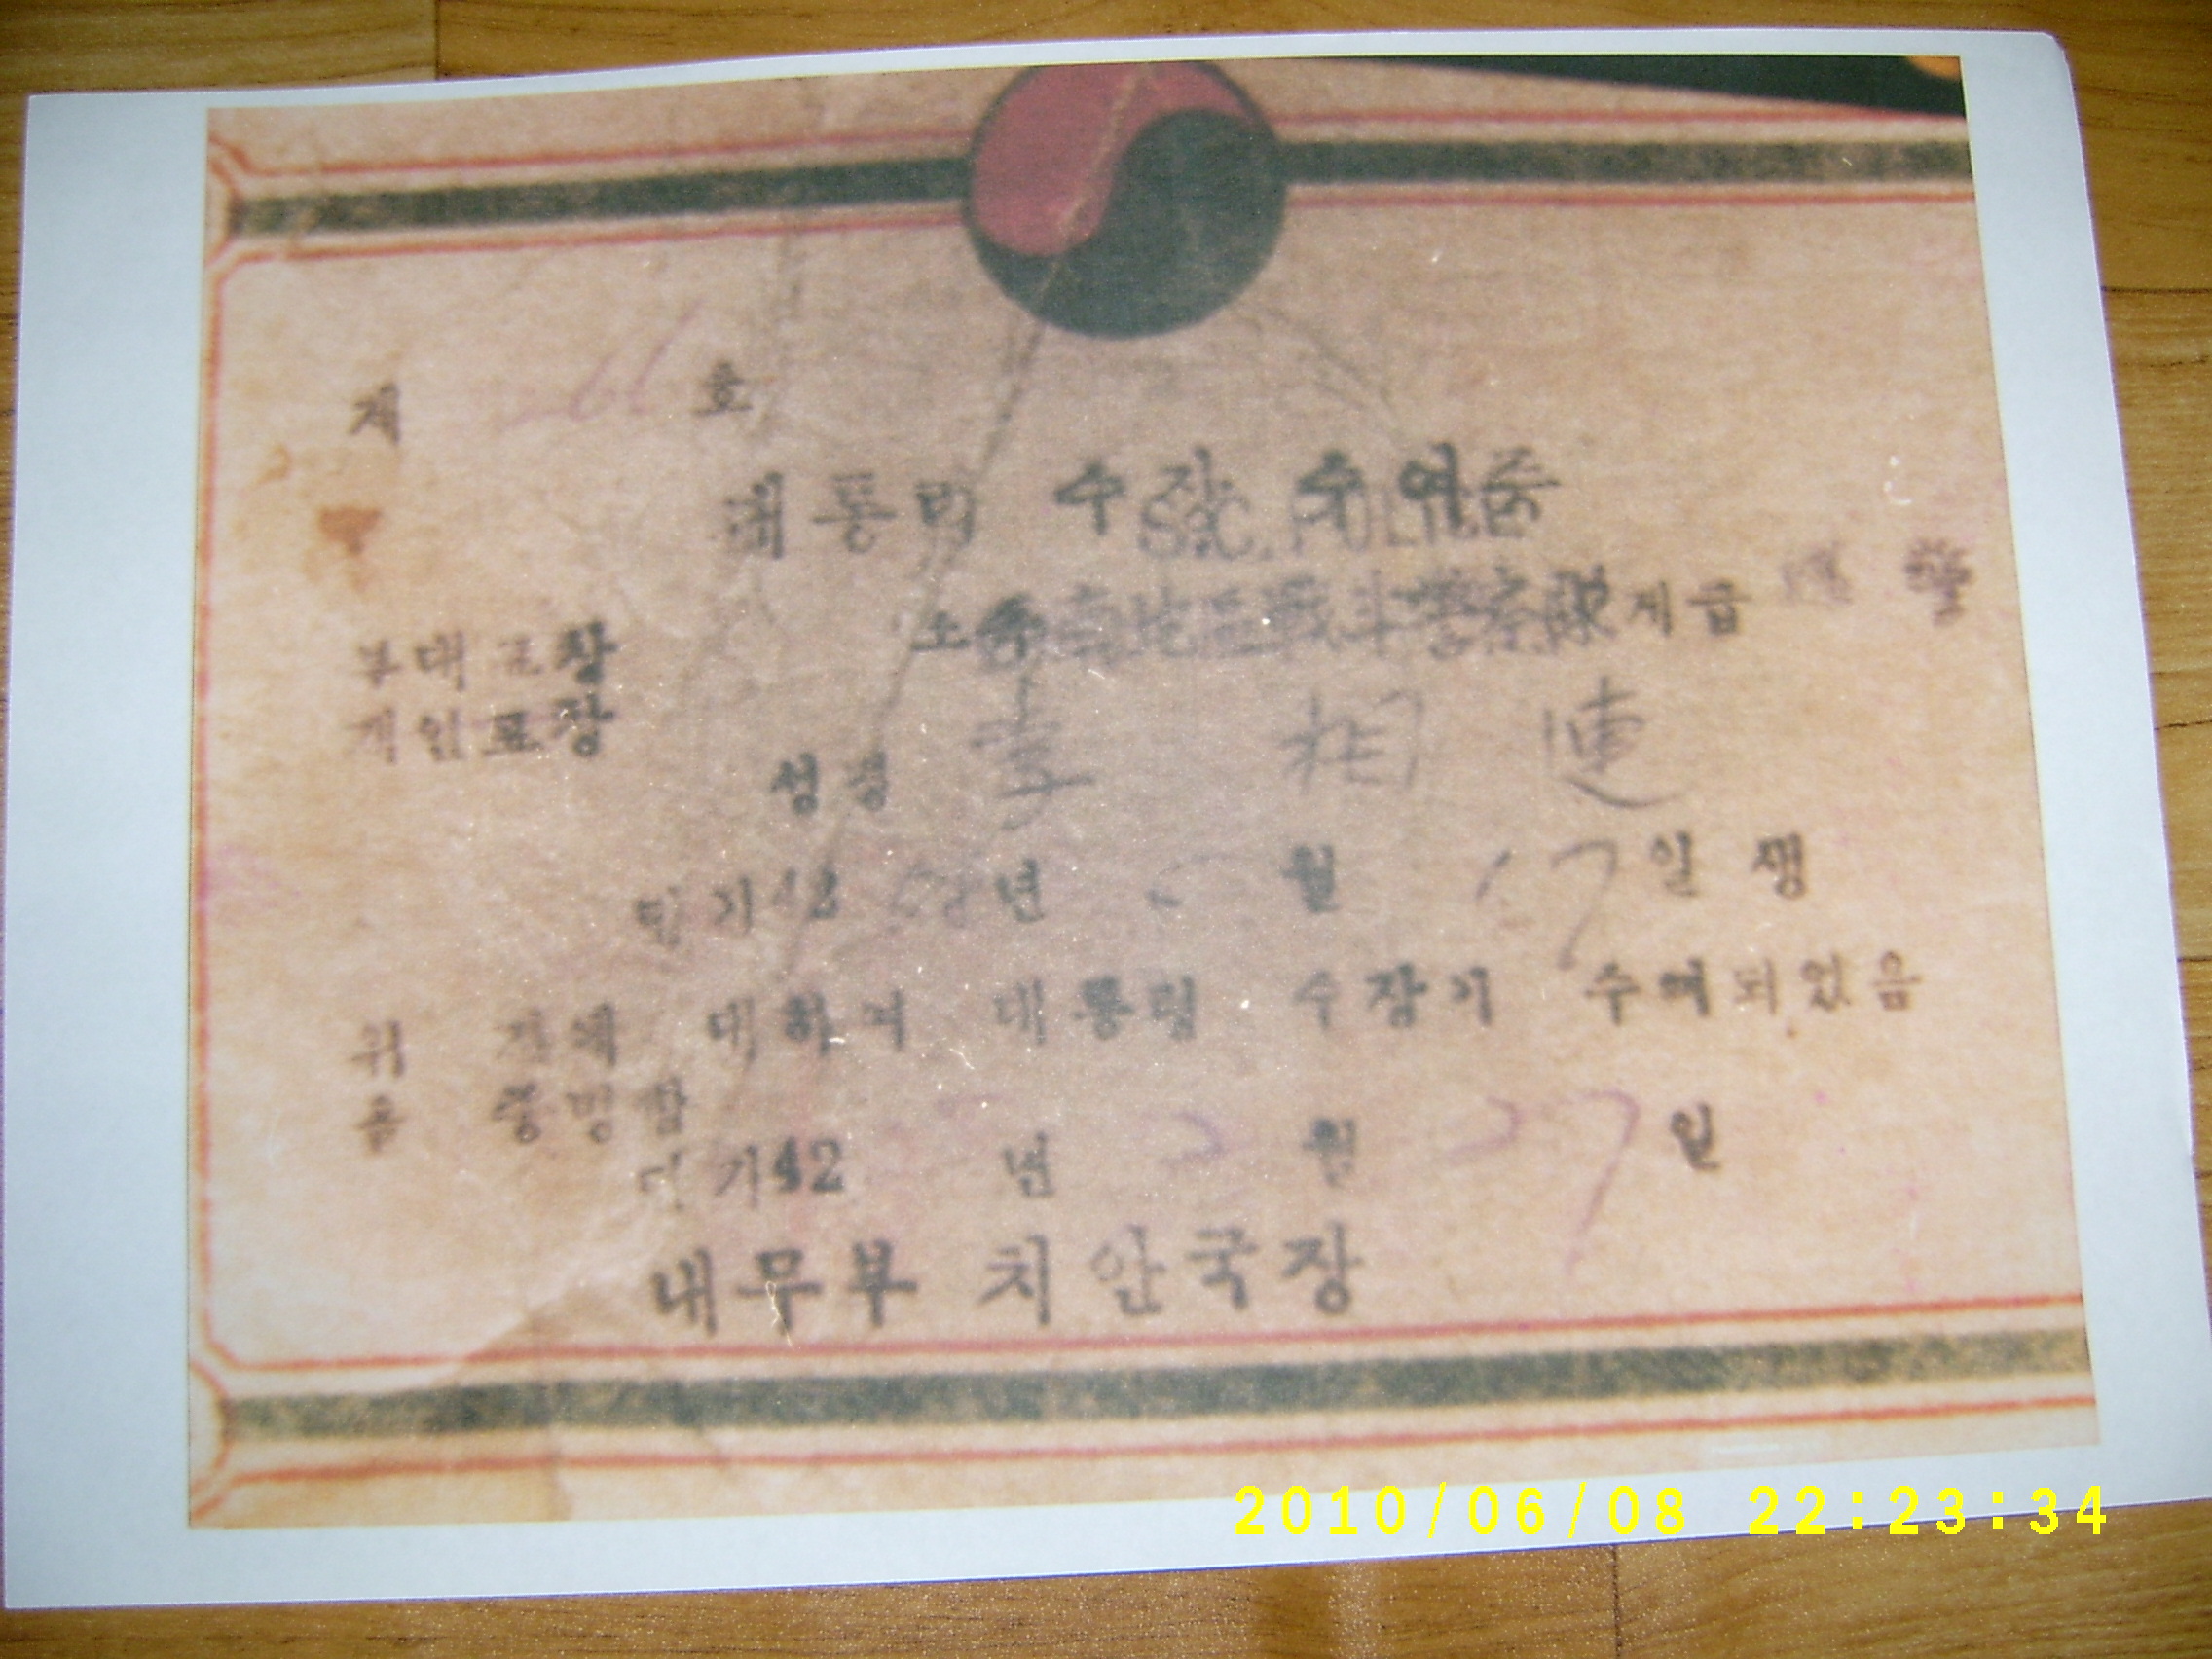 제 호
대통령 수장 수여증
부대표창 소속 南地区戰斗警察隊 계급
개인표장
성명 李 相 連
단기42 년 월 17 일생
위 자에 대하여 대통령 수장이 수여되었음
을 증명함
단기42 년 2 월 27 일
내무부 치안국장
2010/06/08 22:23:34